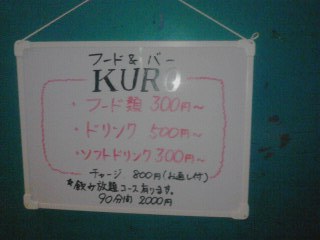 フード&バー
KURO
・フード類 300円〜
・ドリンク 500円〜
・ソフトドリンク 300円〜
チャージ 800円(お通し付)
*飲み放題コースあります。
90分間 2000円